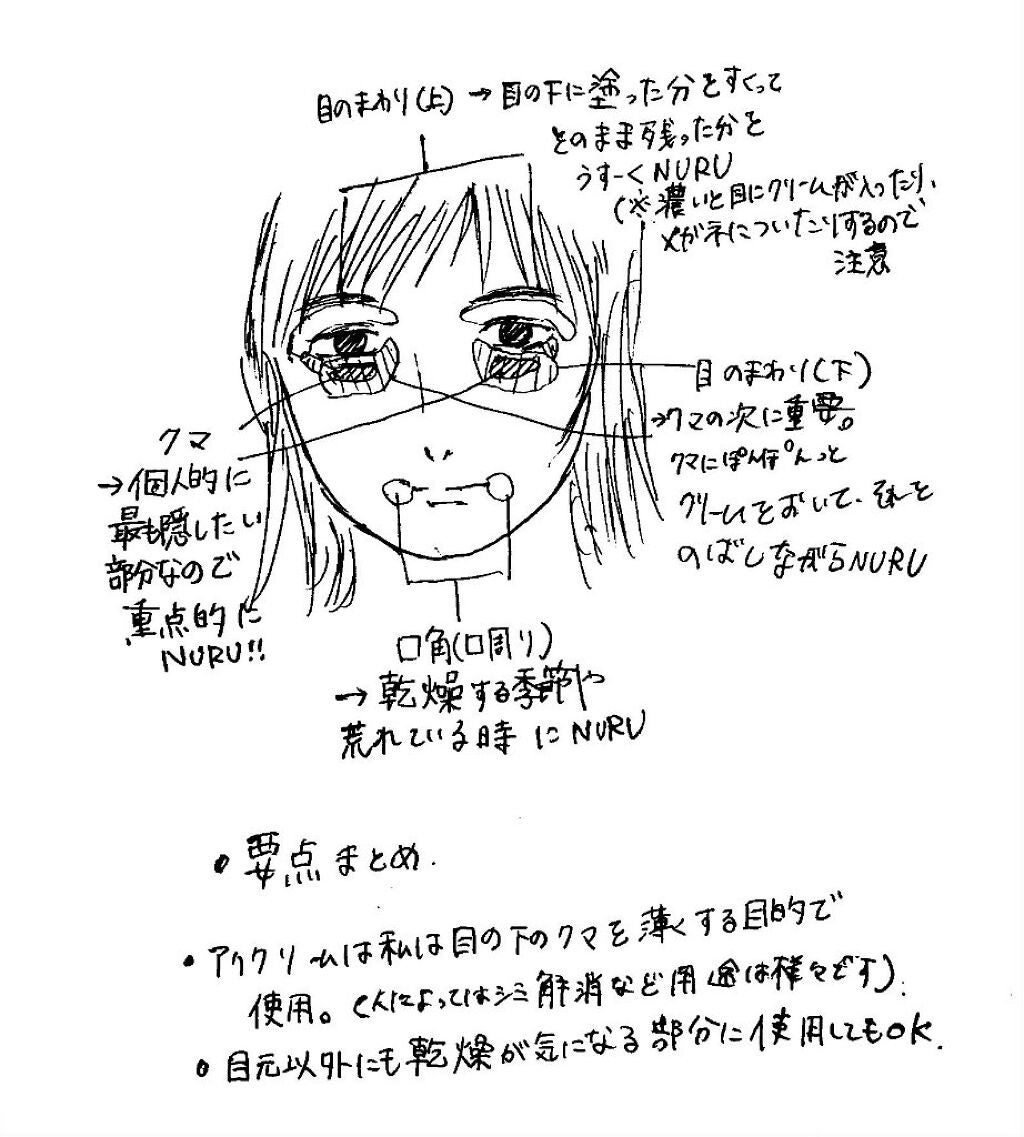 目のまわり(上) → 目の下に塗った分をすくって
そのまま残った分を
うすーくNURU
(※濃いと目にクリームが入ったり、
メガネについたりするので
注意
目のまわり(下)
→クマの次に重要。
クマにぽんぽんっと
クリームをおいて、それを
のばしながらNURU
クマ
→個人的に
最も隠したい
部分なので
重点的に
NURU!!
口角(口周り)
→乾燥する季節や
荒れている時にNURU
•要点まとめ.
•アイクリームは私は目の下のクマを薄くする目的で
使用。(人によってはシミ解消など用途は様々です).
•目元以外にも乾燥が気になる部分に使用してもOK.